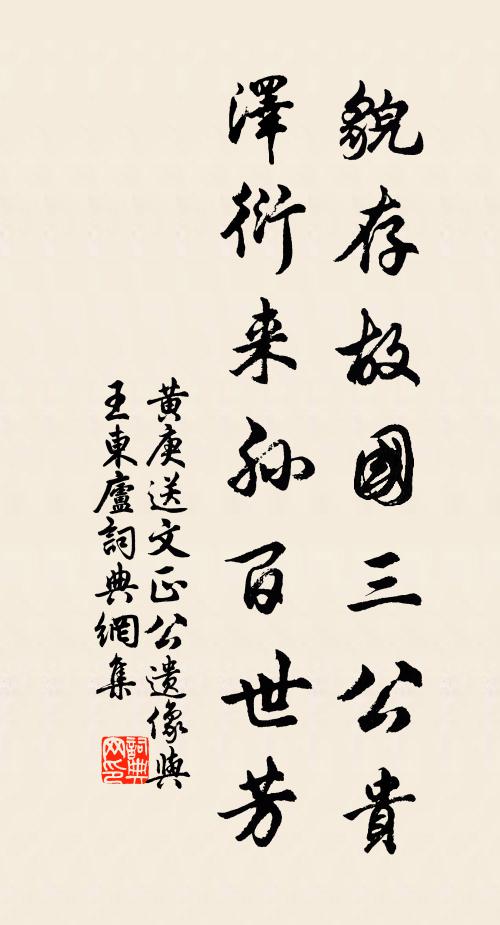 貌存故國三公貴
澤衍来孙百世芳
黄庚送文正公遺像與
王東廬詞典網集
詞典网印